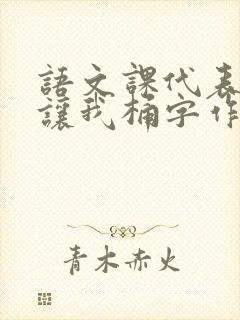 語文課代表
讓我桶字作
青木赤火